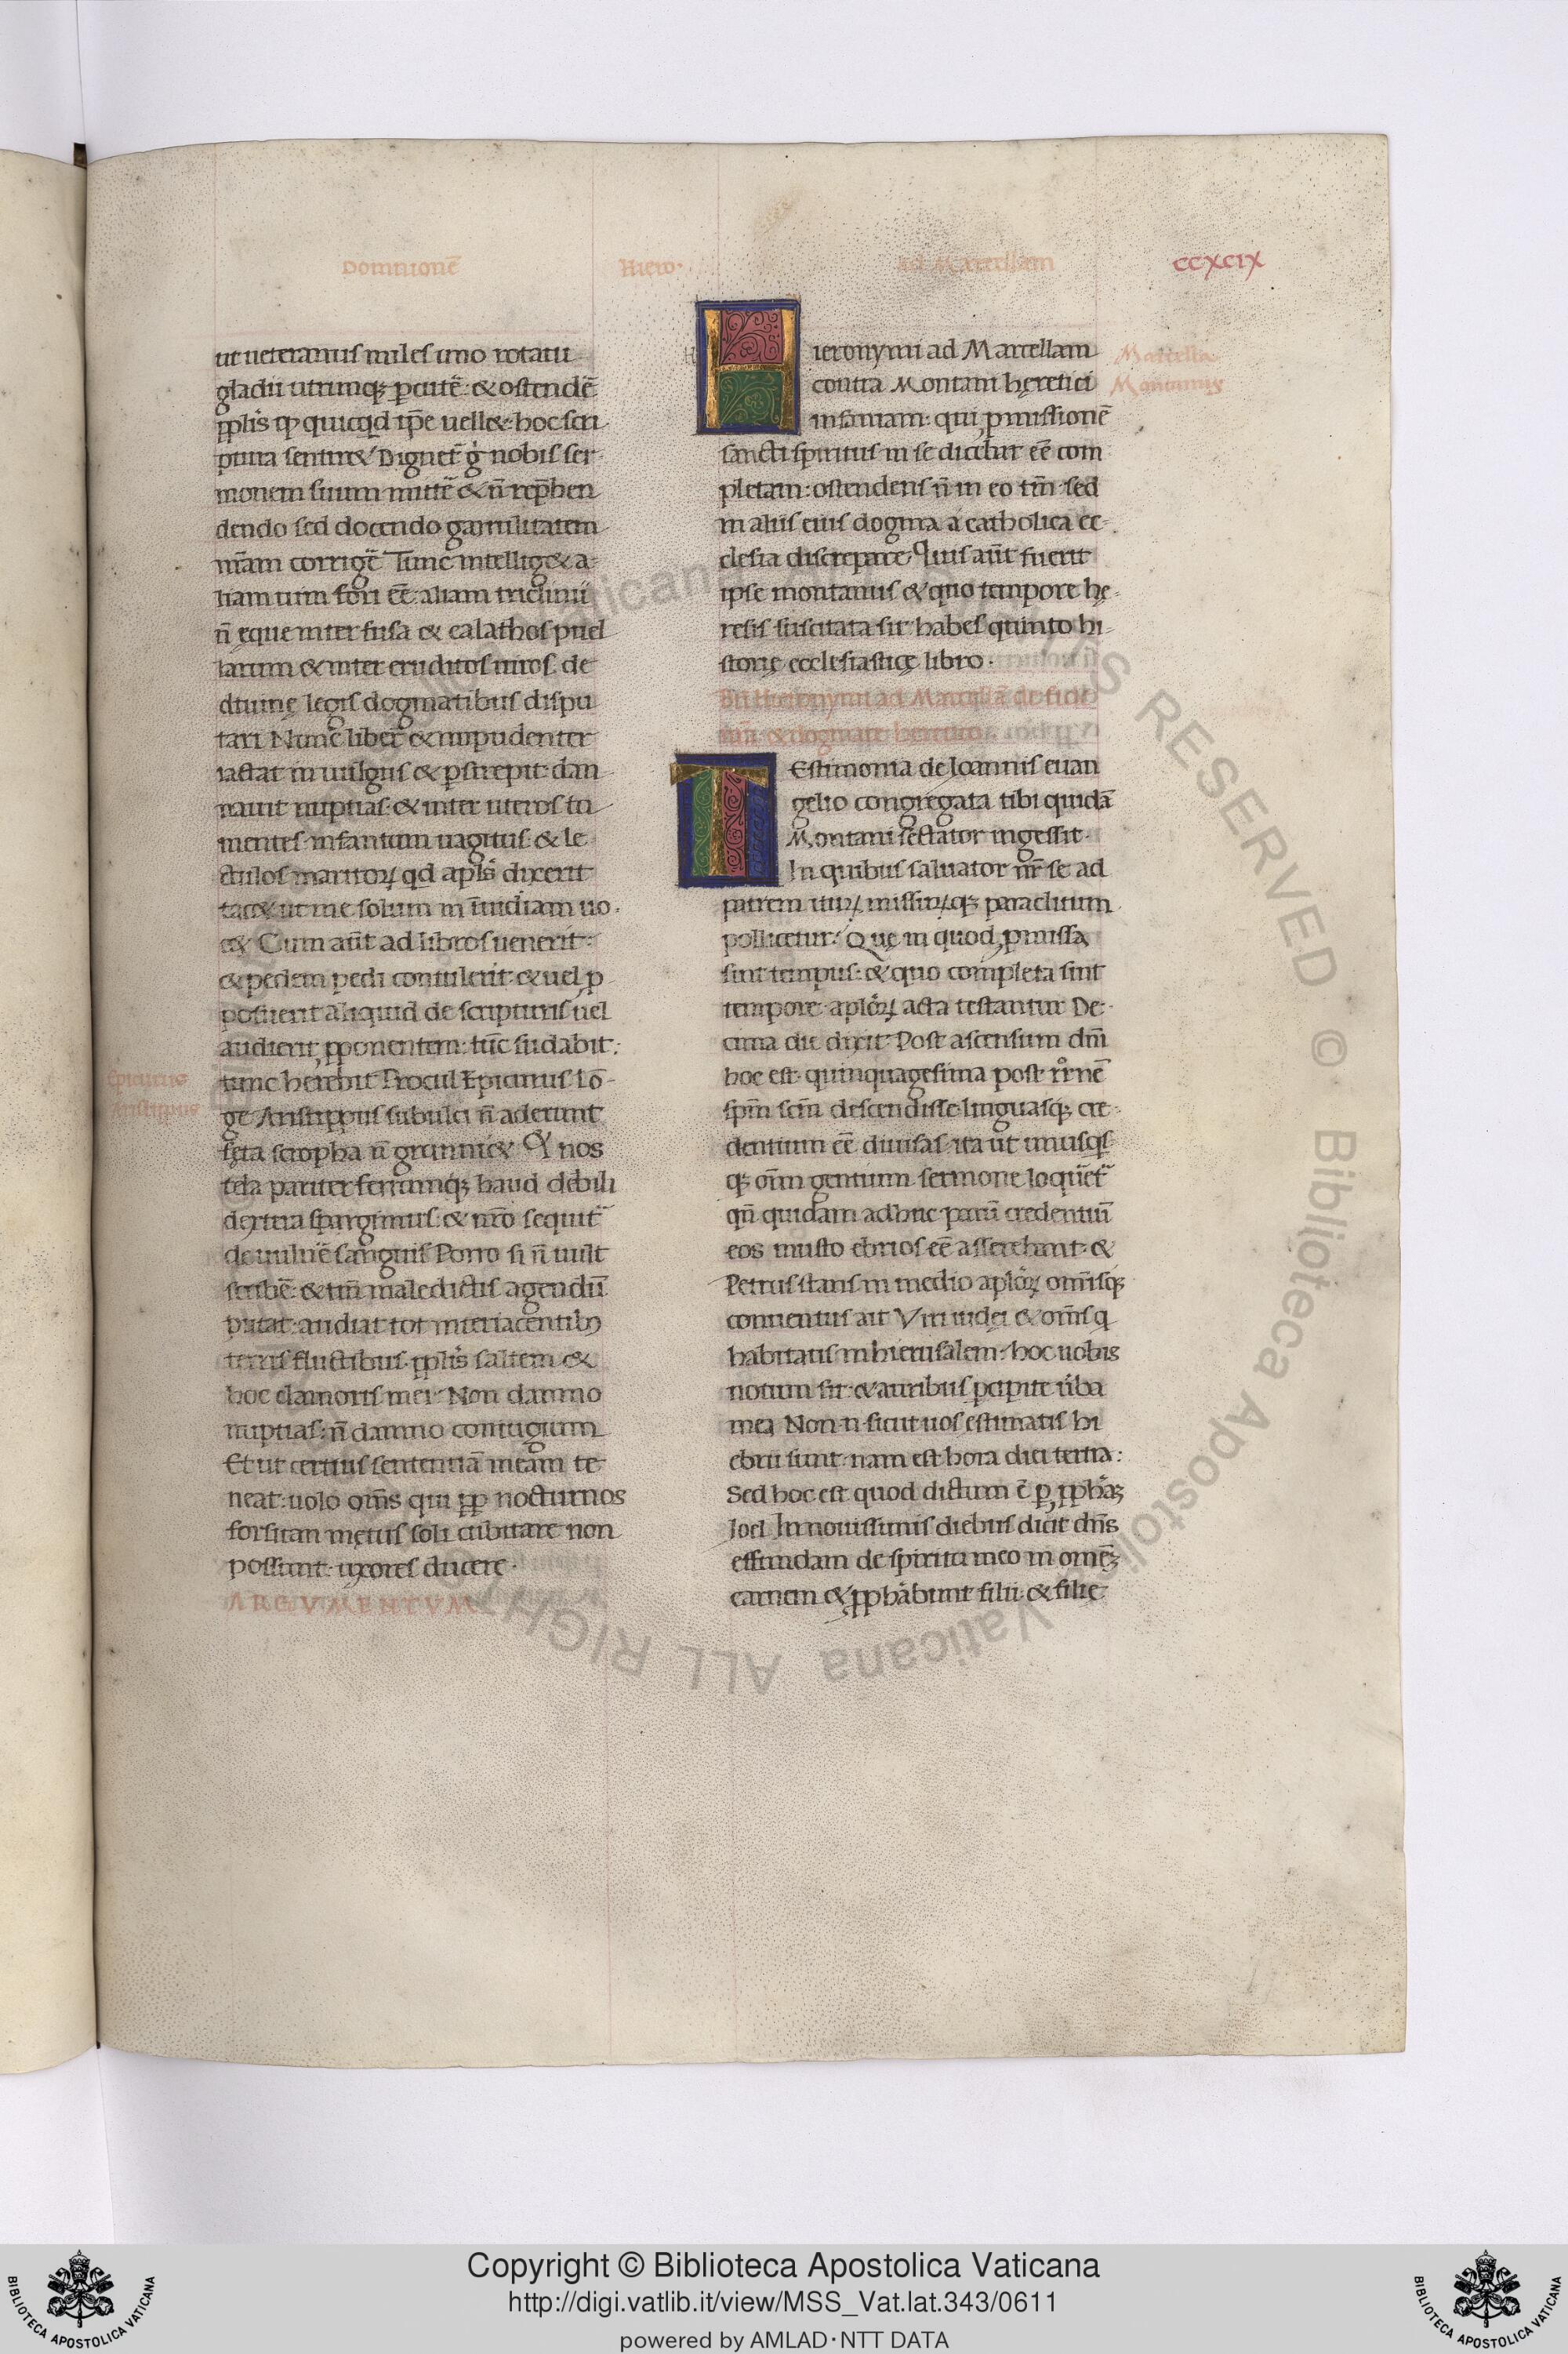 Domnionē
Hiero·
ad Marcellam
CCXCIX
ut ueteranus miles uno rotatu
gladii utrunq; ꝑcutē: & ostendē
ꝓplis ꝙ quicqd ip̄e uell&: hoc scri
ptura sentir& Dignet̄ ḡ nobis ser-
monem suum mittē & n̄ rep̄hen
dendo sed docendo garrulitatem
nr̄am corrigē Tunc intellig& a-
liam uim fori eē: aliam triclinii
n̄ eque inter fusa & calathos puel
larum & inter eruditos uiros. de
diuinę legis dogmatibus dispu
tari Nunc liber̄ & impudenter
iactat in uulgus & ꝑstrepit: dan
nauit nuptias: & inter uteros tu
mentes. infantium uagitus: & le
ctulos maritoꝝ qd apl̄s dixerit
tac& ut me solum in inuidiam uo.
c& Cum aūt ad libros uenerit:
& pedem pedi contulerit. & uel ꝓ
posuerit aliquid de scripturis uel
audierit ꝓponentem: tūc sudabit:
tunc herebit Procul Epicurus lō-
ge Aristippus subulci n̄ aderunt
fęta scropha n̄ grunni& Et nos
tela pariter ferrumq; haud debili
dextera spargimus: & nr̄o sequit̄
de uulnē sanguis Porro si n̄ uult
scribē: & tm̄ maledictis agendū
putat: audiat tot interiacentibꝰ
terris fluctibus. ꝓplis saltem &
hoc clamoris mei. Non damno
nuptias: n̄ damno coniugium
Et ut certius sententiā meam te
neat: uolo om̄s qui ꝓp nocturnos
forsitan metus soli cubitare non
possunt: uxores ducere·
ARGVMENTVM
Epicurus
Aristipus
Hieronymi ad Marcellam
contra Montani hęretici
insaniam: qui ꝓmissionē
sancti spiritus in se dicebat eē com
pletam: ostendens n̄ in eo tm̄ sed
in aliis eius dogma a catholica ec-
clesia discrepare. Quis aūt fuerit
ipse montanus & quo tempore hę-
resis suscitata sit: habes quinto hi-
storię ecclesiasticę libro·
Marcella
Montanus
Bti Hieronymi ad Marcellā de fide
nr̄a & dogmate heretico
TEstimonia de Ioannis euan
gelio congregata tibi quidā
Montani sectator ingessit.
In quibus saluator nr̄ se ad
patrem ituꝝ missuꝝq; paraclitum
pollicetur. Quę in quod ꝓmissa
sint tempus: & quo completa sint
tempore. aploꝝ acta testantur De-
cima die dixit Post ascensum dn̄i
hoc est. quinquagesima post rr̄nē
spm̄ scm̄ descendisse linguasq; cre-
dentium eē diuisas. ita ut unusqs
q; om̄n gentium sermone loquēt̄
qn̄ quidam adhuc parū credentiū
eos musto ebrios eē asserebant: &
Petrus stans in medio aploꝝ om̄isq;
conuentus ait Viri iudei & om̄s q
habitatis in hierusalem: hoc uobis
notum sit: & auribus ꝑcipite ūba
mea Non n. sicut uos estimatis hi
ebrii sunt: nam est hora diei tertia:
Sed hoc est quod dictum ē ꝑ ꝓphāꝫ
Ioel In nouissimis diebus dicit dn̄s
effundam de spiritu meo in omēꝫ
carnem & ꝓphābunt filii. & filię
Copyright © Biblioteca Apostolica Vaticana
http://digi.vatlib.it/view/MSS_Vat.lat.343/0611
powered by AMLAD·NTT DATA
BIBLIOTECA APOSTOLICA VATICANA
BIBLIOTECA APOSTOLICA VATICANA
© Biblioteca Apostolica Vaticana ALL RIGHTS RESERVED